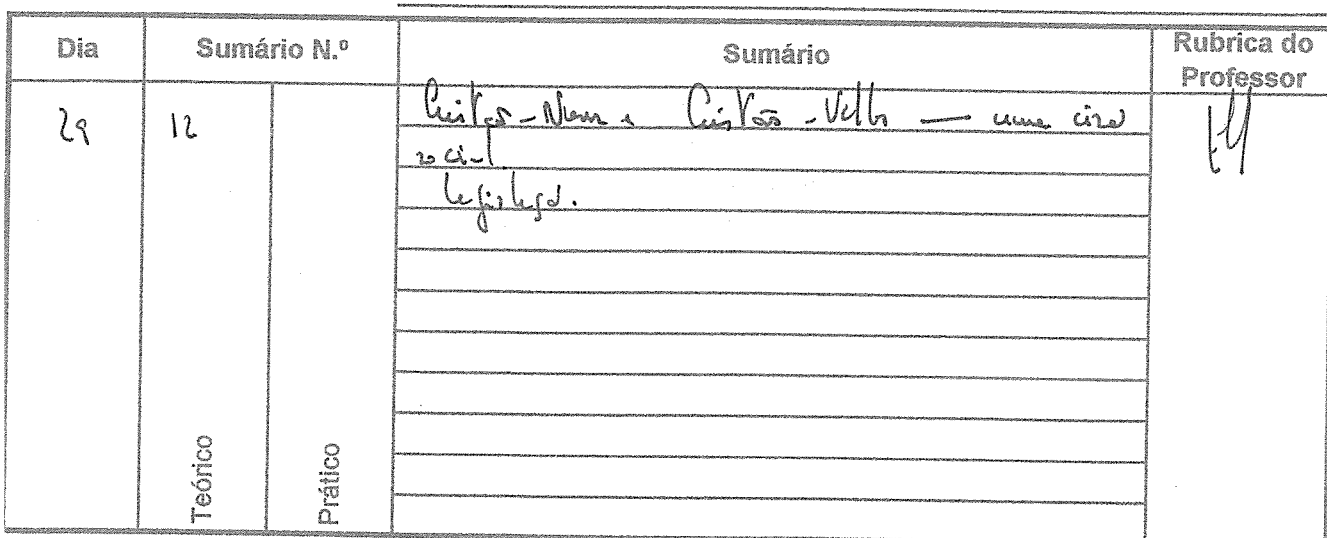 Dia Sumário N.º Sumário Rubrica do Professor
29 12 Cristão-Novo e Cristão-Velho — uma
social.
Legislação.
Teórico Prático